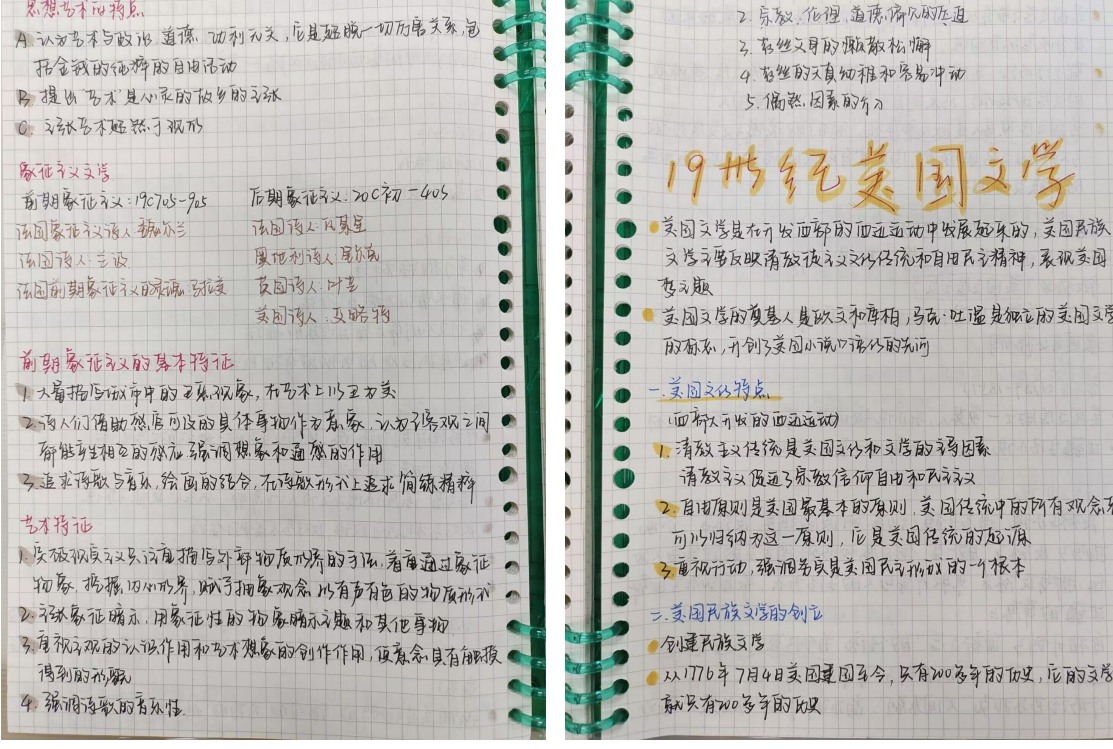 思想艺术的特点
A. 认为艺术与政治、道德、功利无关,它是超脱一切利害关系,包
括金钱的纯粹的自由活动
B. 提出“艺术”是心灵的故乡的主张
C. 主张艺术超然于现形
象征主义文学
前期象征主义:19C70s-90s
法国象征主义诗人:魏尔兰
法国诗人:兰波
法国前期象征主义的灵魂:马拉美
后期象征主义:20C初-40s
法国诗人:瓦莱里
奥地利诗人:里尔克
英国诗人:叶芝
美国诗人:艾略特
前期象征主义的基本特征
1. 大量描写城市中的丑恶现象,在艺术上以丑为美
2. 诗人们借助然后可及的具体事物作为意象,认为主客观之间
都能产生相互的感应,强调想象和通感的作用
3. 追求诗歌与音乐,绘画的结合,在诗歌形式上追求简练精粹
艺术特征
1. 反极现实主义只注重描写外部物质世界的手法,着重通过象征
物象,挖掘内心世界,赋予抽象观念以有声有色的物质形式
2. 主张象征暗示,用象征性的物象暗示主题和其他事物
3. 重视主观的认识作用和艺术想象的创作作用,使意念具有能触摸
得到的形貌
4. 强调诗歌的音乐性.
2. 宗教、伦理、道德偏见的压迫
3. 苔丝父母的
4. 苔丝的天真幼稚和容易冲动
5. 偶然因素的
19世纪美国文学
美国文学是在开发西部的西进运动中发展起来的,美国民族
文学主要反映清教徒主义文化传统和自由民主精神,表现美国
梦主题
美国文学的奠基人是欧文和库柏,马克·吐温是独立的美国文学
的标志,开创了美国小说口语化的先河
一. 美国文化特点
(西部大开发的西进运动)
1. 清教主义传统是美国文化和文学的主导因素
清教主义促进了宗教信仰自由和民主主义
2. 自由原则是美国最基本的原则,美国传统中的所有观念
可以归纳为这一原则,它是美国传统的起源
3. 重视行动,强调务实是美国民主形成的一个根本
二. 美国民族文学的创立
创建民族文学
从1776年7月4日美国建国至今,只有200多年的历史,它的文学
就只有200多年的历史